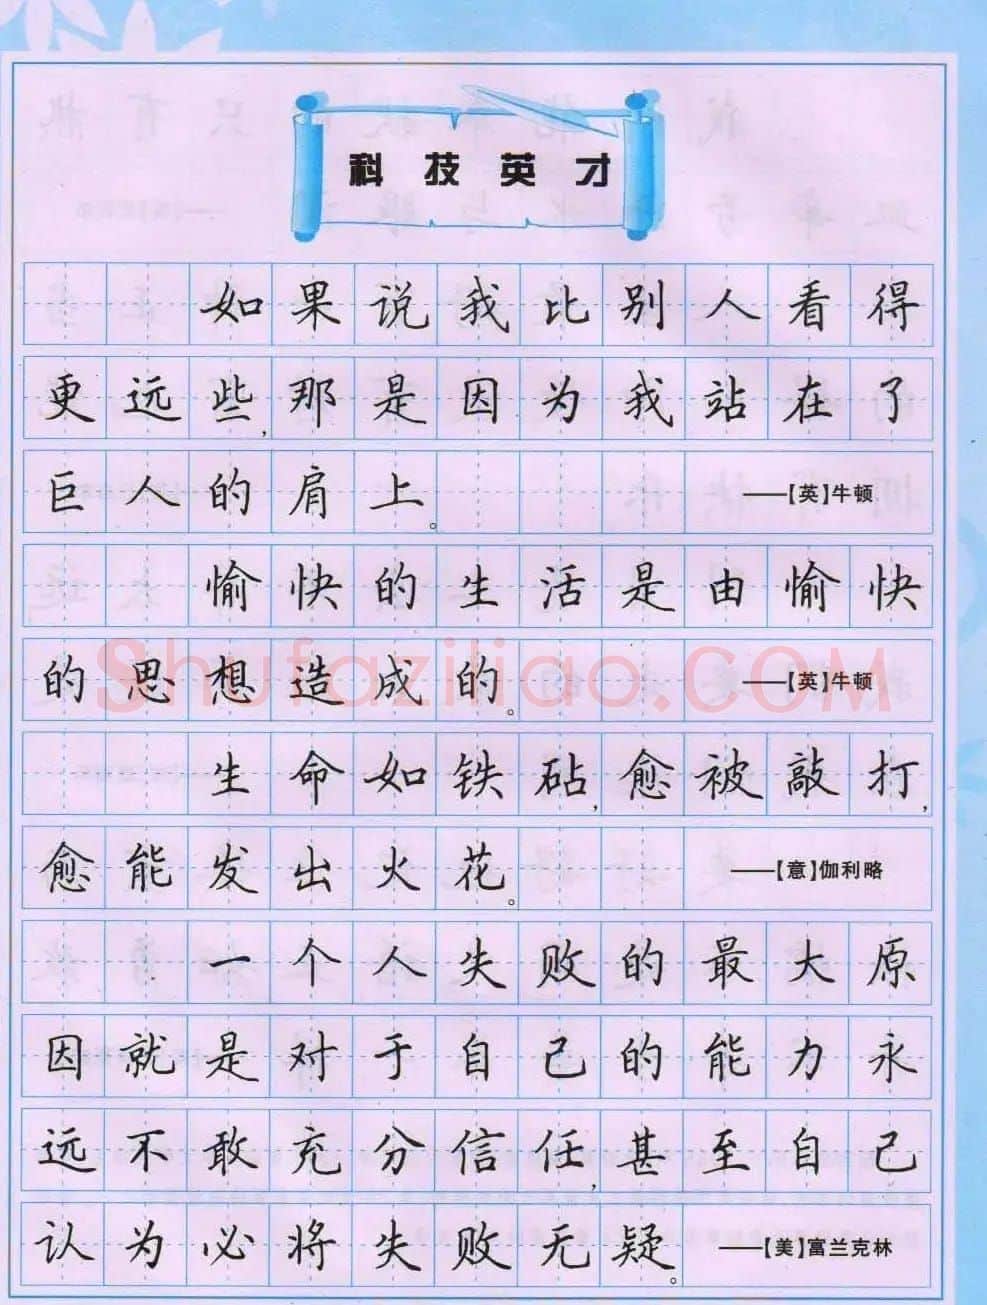 科技英才
如果说我比别人看得
更远些,那是因为我站在了
巨人的肩上。 ——【英】牛顿
愉快的生活是由愉快
的思想造成的。 ——【英】牛顿
生命如铁砧,愈被敲打,
愈能发出火花。 ——【意】伽利略
一个人失败的最大原
因就是对于自己的能力永
远不敢充分信任,甚至自己
认为必将失败无疑。 ——【美】富兰克林
Shufaziliao.COM